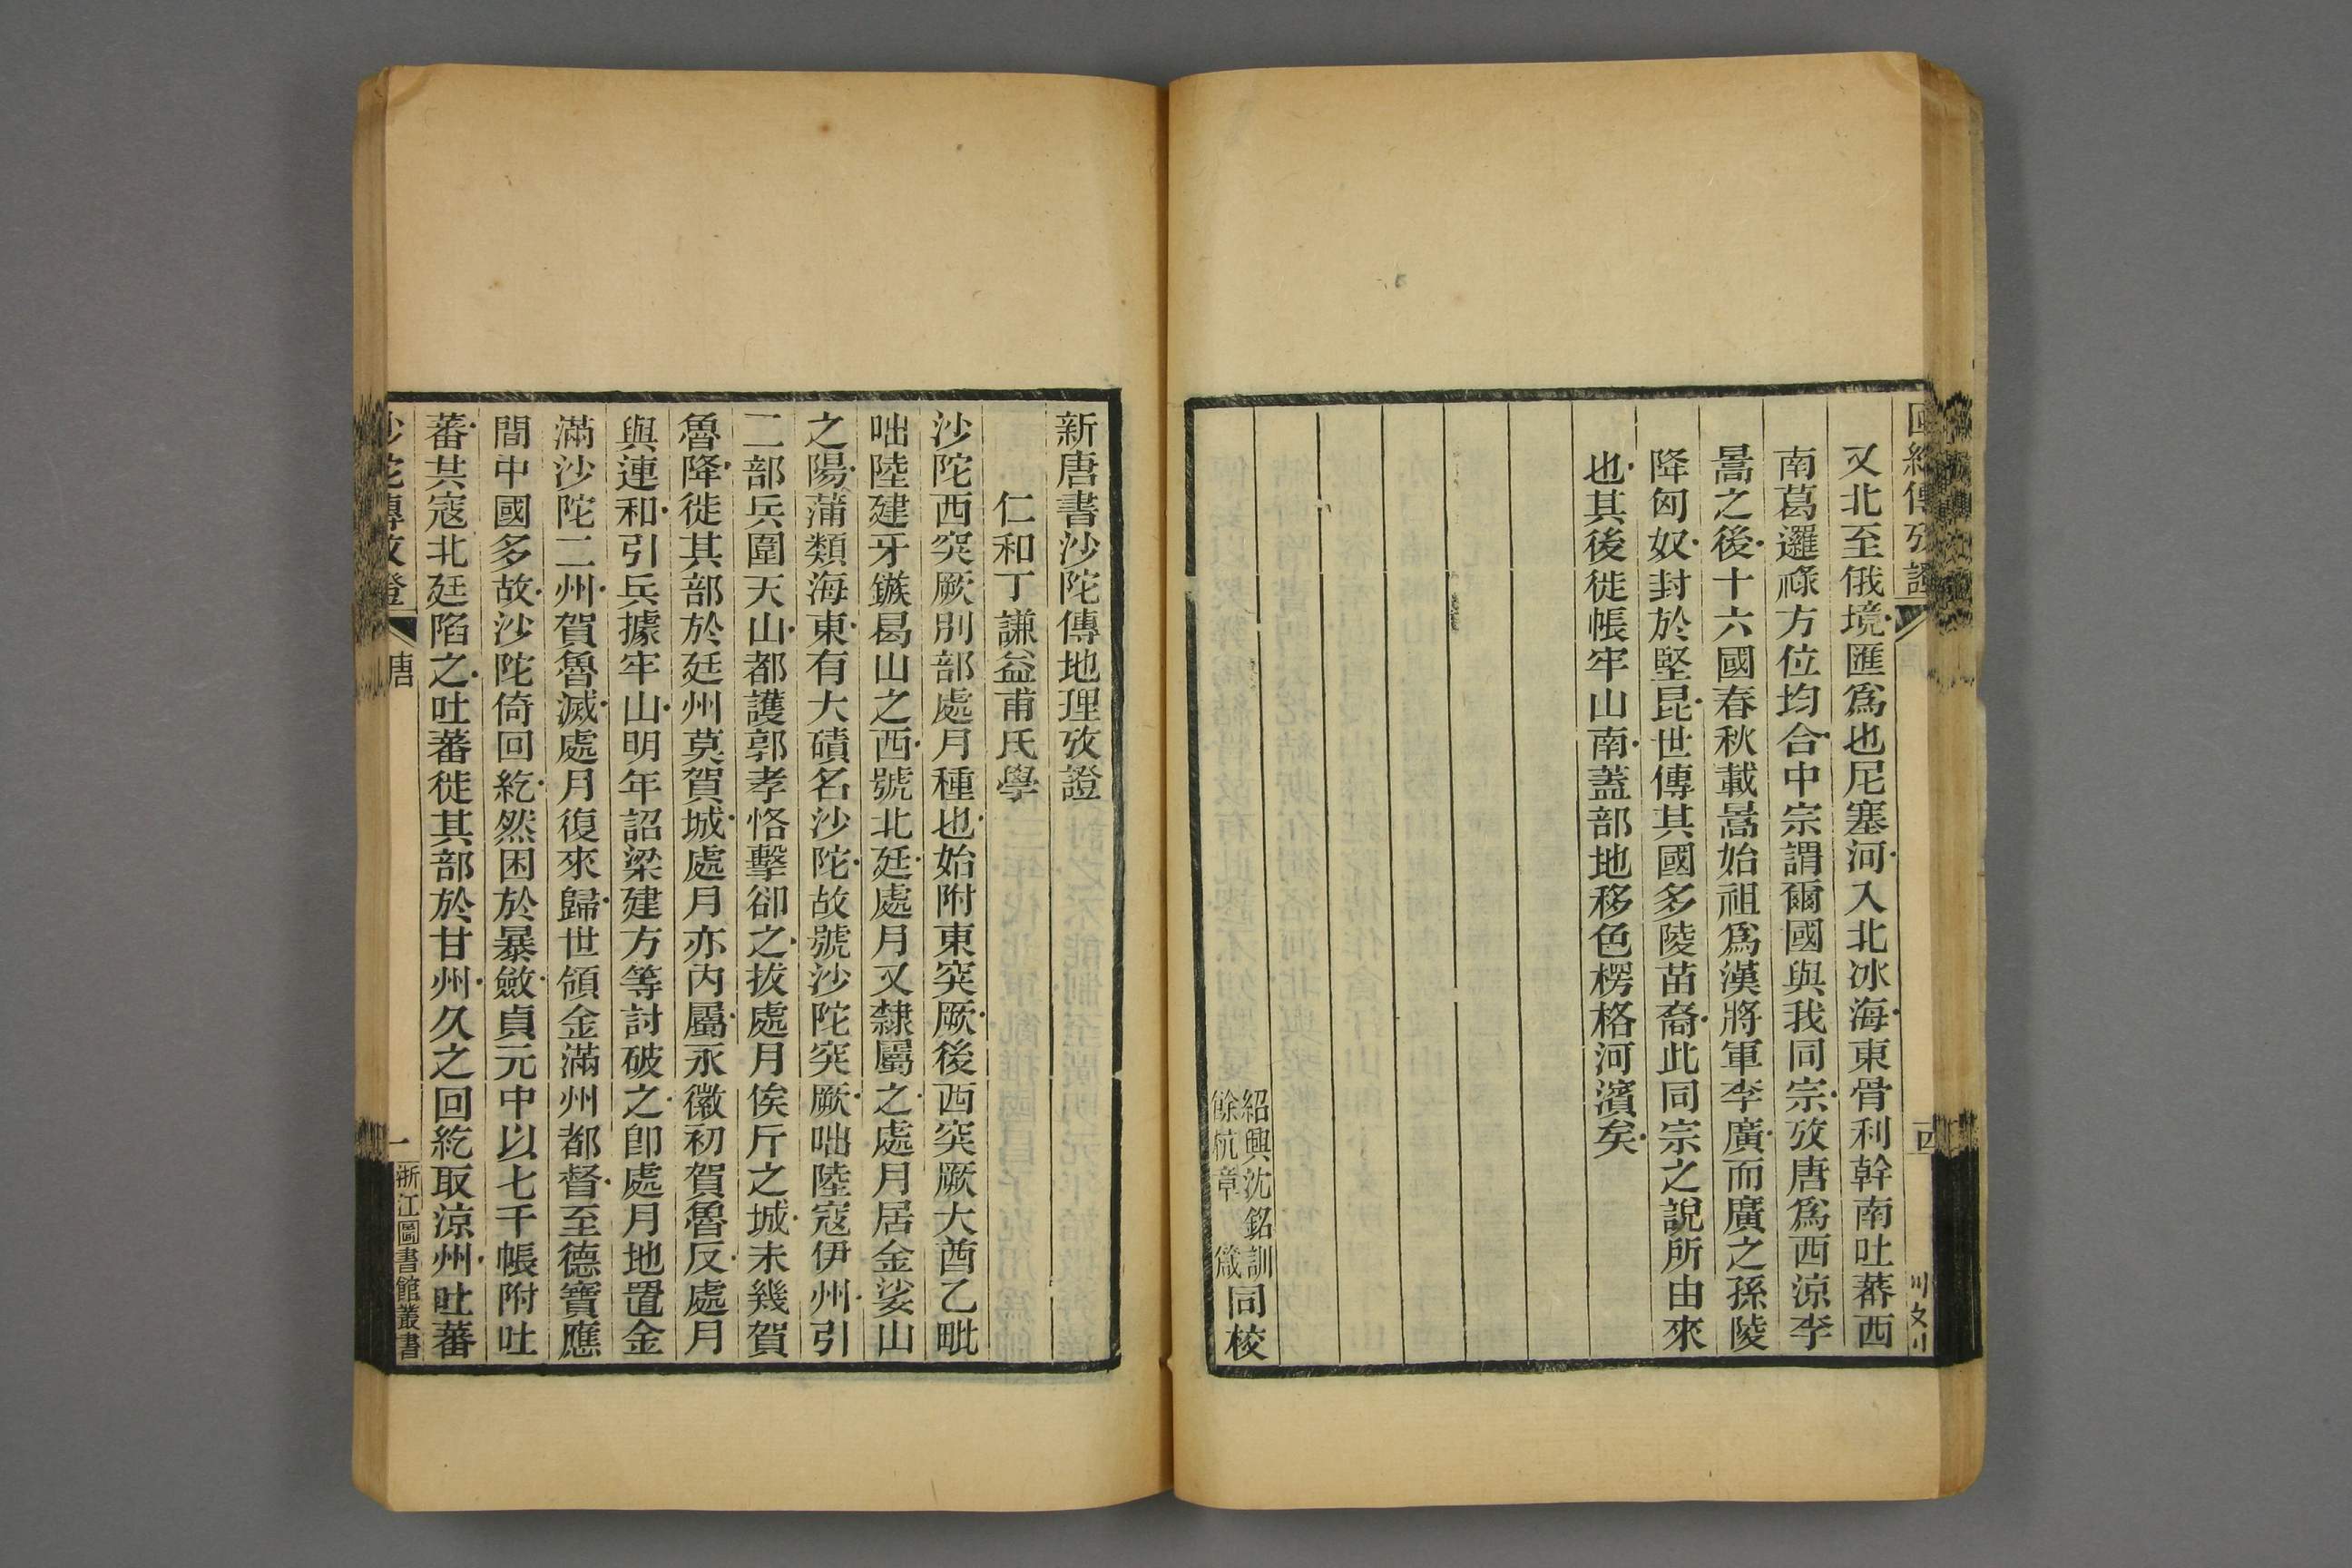 又北至俄境匯爲也尼塞河入北冰海東骨利幹南吐蕃西
南葛邏祿方位均合中宗謂爾國與我同宗攷唐爲西涼李
暠之後十六國春秋載暠始祖爲漢將軍李廣而廣之孫陵
降匈奴封於堅昆世傳其國多陵苗裔此同宗之說所由來
也其後徙帳牢山南蓋部地移色楞格河濱矣
紹興沈銘訓
餘杭章箴
同校
新唐書沙陀傳地理攷證
仁和丁謙益甫氏學
沙陀西突厥別部處月種也始附東突厥後西突厥大酋乙毗
咄陸建牙鏃曷山之西號北廷處月又隸屬之處月居金娑山
之陽蒲類海東有大磧名沙陀故號沙陀突厥咄陸寇伊州引
二部兵圍天山都護郭孝恪擊卻之拔處月俟斤之城未幾賀
魯降徙其部於廷州莫賀城處月亦內屬永徽初賀魯反處月
與連和引兵據牢山明年詔梁建方等討破之卽處月地置金
滿沙陀二州賀魯滅處月復來歸世領金滿州都督至德寶應
間中國多故沙陀倚回紇然困於暴斂貞元中以七千帳附吐
蕃共寇北廷陷之吐蕃徙其部於甘州久之回紇取涼州吐蕃
沙陀傳攷證
唐
一
浙江圖書館叢書